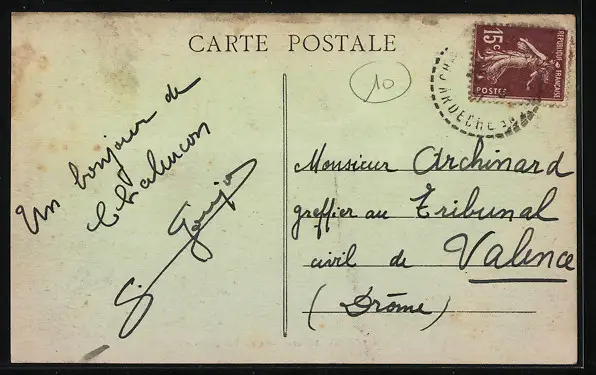 CARTE POSTALE
10
15c
REPUBLIQUE FRANÇAISE
POSTES
ARDECHE
Un bonjour de
Chalencon
Monsieur Archinard
greffier au Tribunal
civil de Valence
(Drôme)